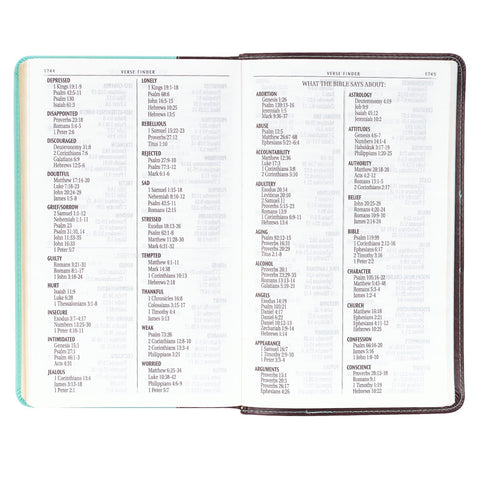 1764
VERSE FINDER
DEPRESSED
1 Kings 19:1-9
Psalm 42:5-11
Psalm 130
Isaiah 61:3
DISAPPOINTED
Proverbs 23:18
Romans 5:4-5
1 Peter 2:6
DISCOURAGED
Deuteronomy 31:8
2 Corinthians 7:6
Galatians 6:9
Hebrews 12:5-6
DOUBTFUL
Matthew 17:14-20
Luke 7:18-23
John 20:24-29
James 1:5-8
GRIEF/SORROW
2 Samuel 1:1-12
Psalm 23
John 11:33-35
John 16:33
1 Peter 5:7
GUILTY
Romans 3:21-31
Romans 8:1-17
1 John 3:18-20
HURT
Isaiah 11:9
Luke 6:28
1 Thessalonians 3:1-8
INSECURE
Exodus 3:7—4:17
Numbers 13:25-30
1 Peter 4:10-11
INTIMIDATED
Genesis 15:1
Psalm 27:1
Psalm 46:1-3
Acts 4:31
JEALOUS
1 Corinthians 13:4
James 3:13-18
1 Peter 2:1
LONELY
1 Kings 19:1-18
Psalm 68:6
John 16:5-15
Hebrews 10:25
Hebrews 13:5
REBELLIOUS
1 Samuel 15:22-23
Proverbs 27:12
Titus 1:10
REJECTED
Psalm 27:9-10
Psalm 77:1-12
Mark 6:1-6
SAD
1 Samuel 1:15-18
Nehemiah 8:10-12
Psalm 42:5-11
Romans 12:15
STRESSED
Exodus 18:13-26
Psalm 62:1-4
Matthew 11:28-30
Mark 6:31-32
TEMPTED
Matthew 4:1-11
Mark 14:38
1 Corinthians 10:13
Hebrews 2:18
THANKFUL
1 Chronicles 16:8
Colossians 3:15-17
1 Timothy 4:4
Hebrews 12:28
WEAK
Psalm 73:26
2 Corinthians 12:8-10
2 Corinthians 13:3-4
Philippians 3:21
WORRIED
Matthew 6:25-34
Luke 10:38-42
Philippians 4:6-9
1 Peter 5:7
VERSE FINDER
1765
WHAT THE BIBLE SAYS ABOUT:
ABORTION
Genesis 1:26
Psalm 139:13-16
Jeremiah 1:5
Mark 9:36-37
ABUSE
Psalm 12:5
Matthew 26:67-68
Ephesians 5:21—6:4
ACCOUNTABILITY
Matthew 12:36
Luke 17:3
1 Corinthians 5:8
2 Corinthians 5:10
ADULTERY
Exodus 20:14
Leviticus 20:10
2 Samuel 11
Proverbs 5:15-23
Romans 12:9
1 Corinthians 6:9-11
Hebrews 13:4
AGING
Psalm 92:12-15
Proverbs 16:31
Proverbs 20:29
Titus 2:1-8
ALCOHOL
Proverbs 20:1
Proverbs 23:29-35
Romans 13:13-14
Galatians 5:19-21
ANGELS
Exodus 14:19
Daniel 4:17
Daniel 6:22
Daniel 10:12-13
Zechariah 1:9-14
Hebrews 1:14
APPEARANCE
1 Samuel 16:7
1 Timothy 2:9-10
1 Peter 3:3-4
ARGUMENTS
Proverbs 15:1
Proverbs 20:3
Proverbs 26:17
Ephesians 4:26
ASTROLOGY
Deuteronomy 4:19
Job 9:9
Isaiah 45:12
Jeremiah 10:2
ATTITUDES
Genesis 4:6-7
Numbers 14:1-4
Habakkuk 3:17-19
Philippians 1:20-25
AUTHORITY
Matthew 28:18-20
Acts 4:2-12
Romans 13:1
2 Corinthians 10:8
BELIEF
John 20:25-29
Romans 4:20-24
Romans 10:9-10
James 2:14-24
BIBLE
Psalm 119:99
1 Corinthians 2:12-16
2 Timothy 3:16
1 Peter 2:2
CHARACTER
Matthew 5:43-48
Romans 5:3-4
James 1:2-4
CHURCH
Matthew 16:18
Ephesians 3:21
Ephesians 4:11-12
Hebrews 10:25
CONFESSION
Psalm 66:16-20
James 5:16
1 John 1:8-10
CONSCIENCE
Proverbs 28:13-18
Romans 9:1
1 Timothy 1:19
Hebrews 9:14